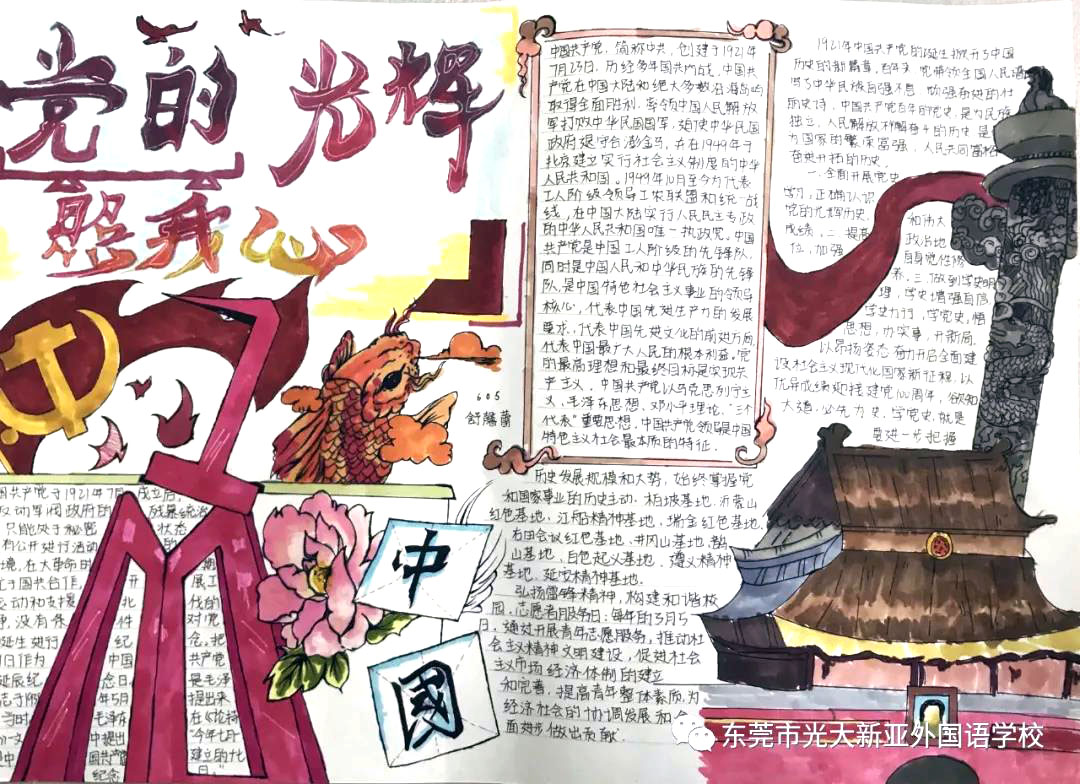 党的光辉
照我心
中国共产党，简称中共，创建于1921年
7月23日，历经多年国共内战，中国共
产党在中国大陆和绝大多数沿海岛屿
取得全面胜利，率领中国人民解放
军打败中华民国国军，迫使中华民国
政府退守台澎金马，并在1949年于
北京建立实行社会主义制度的中华
人民共和国。1949年10月至今为代表
工人阶级领导工农联盟和统一战
线，在中国大陆实行人民民主专政
的中华人民共和国唯一执政党。中国
共产党是中国工人阶级的先锋队，
同时是中国人民和中华民族的先锋
队，是中国特色社会主义事业的领导
核心，代表中国先进生产力的发展
要求，代表中国先进文化的前进方向，
代表中国最广大人民的根本利益。党
的最高理想和最终目标是实现共
产主义。中国共产党以马克思列宁主
义、毛泽东思想、邓小平理论、“三个
代表”重要思想，中国共产党领导是中国
特色主义社会最本质的特征．
1921年中国共产党的诞生掀开了中国
历史的新篇章，百年来 党带领全国人民谱
写了中华民族自强不息 顽强奋进的壮
丽史诗，中国共产党百年的党史，是为民族
独立，人民解放
为国家的繁荣富强，人民共同富裕
奋史开拓的历史．
一．全面开展党史
学习，正确认识
党的光辉历史，
和伟大
成绩，二．提高
政治地
位，加强
自身党性修
养，三．做到学史明
理，学史增强自信
学史力行，学党史，悟
思想，办实事，开新局
以昂扬姿态奋力开启全面建
设社会主义现代化国家新征程，以
优异成绩迎接建党100周年，欲知
大道，必先为史，学党史，就是
要进一步把握
605
历史发展规模和大势，始终掌握党
和国家事业的历史主动．柏坡基地．沂蒙山
红色基地．江船精神基地．瑞金红色基地．
古田会议红色基地．井冈山基地．
山基地．百色起义基地．遵义精神
基地．延安精神基地．
弘扬雷锋精神，构建和谐校
园，志愿者服务日，每年的3月5
日，通过开展青年志愿服务，推动社
会主义精神文明建设，促进社会
主义市场经济体制的建立
和完善，提高青年整体素质，为
经济社会的协调发展和全
面进步做出贡献．
国共产党于1921年7月 成立后，
反动军阀政府的 残暴统治
只能处于秘密 状态
有公开进行活动
境，在大革命时 期
于国共合作， 开 展工
运动和支援 北 伐的
没有条 件 对党
诞生进行 纪 念，把
1日作为 中国 共产党
诞辰纪 念日， 是毛泽
年5月 提出来
毛泽东 在《论持
中提出 “今年七月
国共产党 建立的
纪念 日。”
中
國
东莞市光大新亚外国语学校